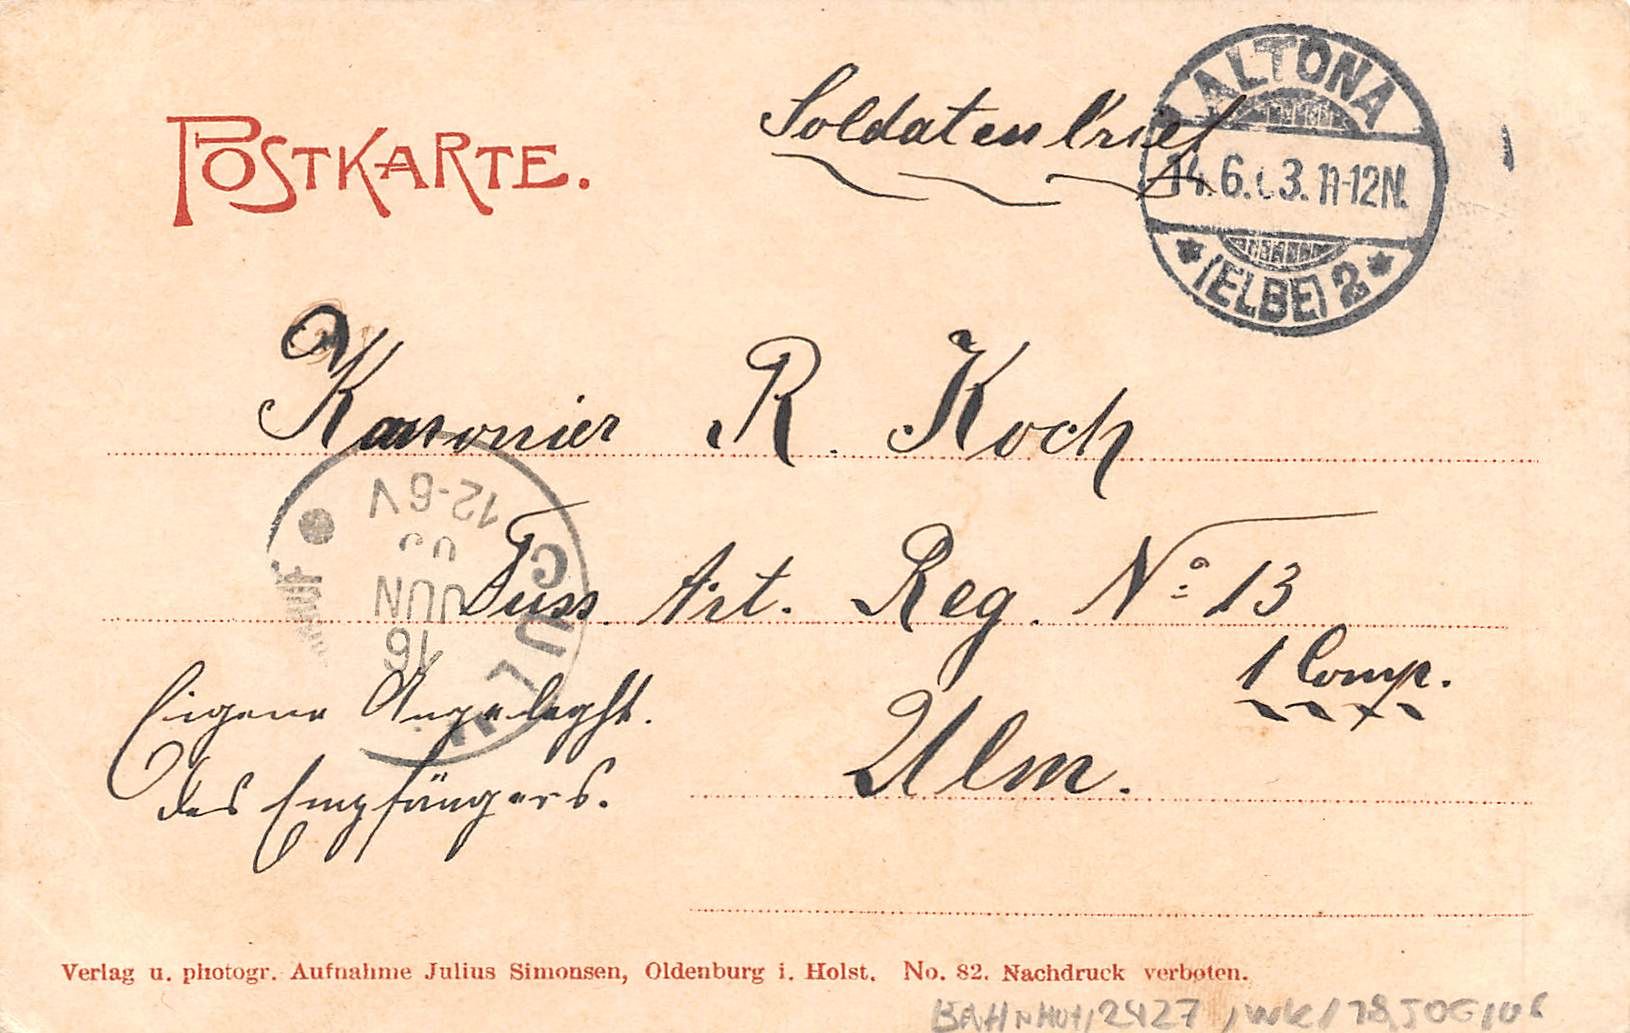 POSTKARTE.
Soldatenbrief
ALTONA
14.6.03. 11-12N.
* (ELBE) 2 *
Kanonier R. Koch
Fuss. Art. Reg. No 13
1 Comp.
Ulm.
Eigene Angeleght.
des Empfängers.
12-6V
JUN
16
Verlag u. photogr. Aufnahme Julius Simonsen, Oldenburg i. Holst. No. 82. Nachdruck verboten.
BAHNHOF/2427